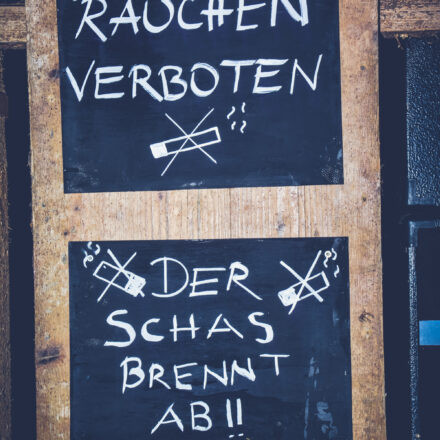 RAUCHEN
VERBOTEN
DER
SCHAS
BRENNT
AB!!